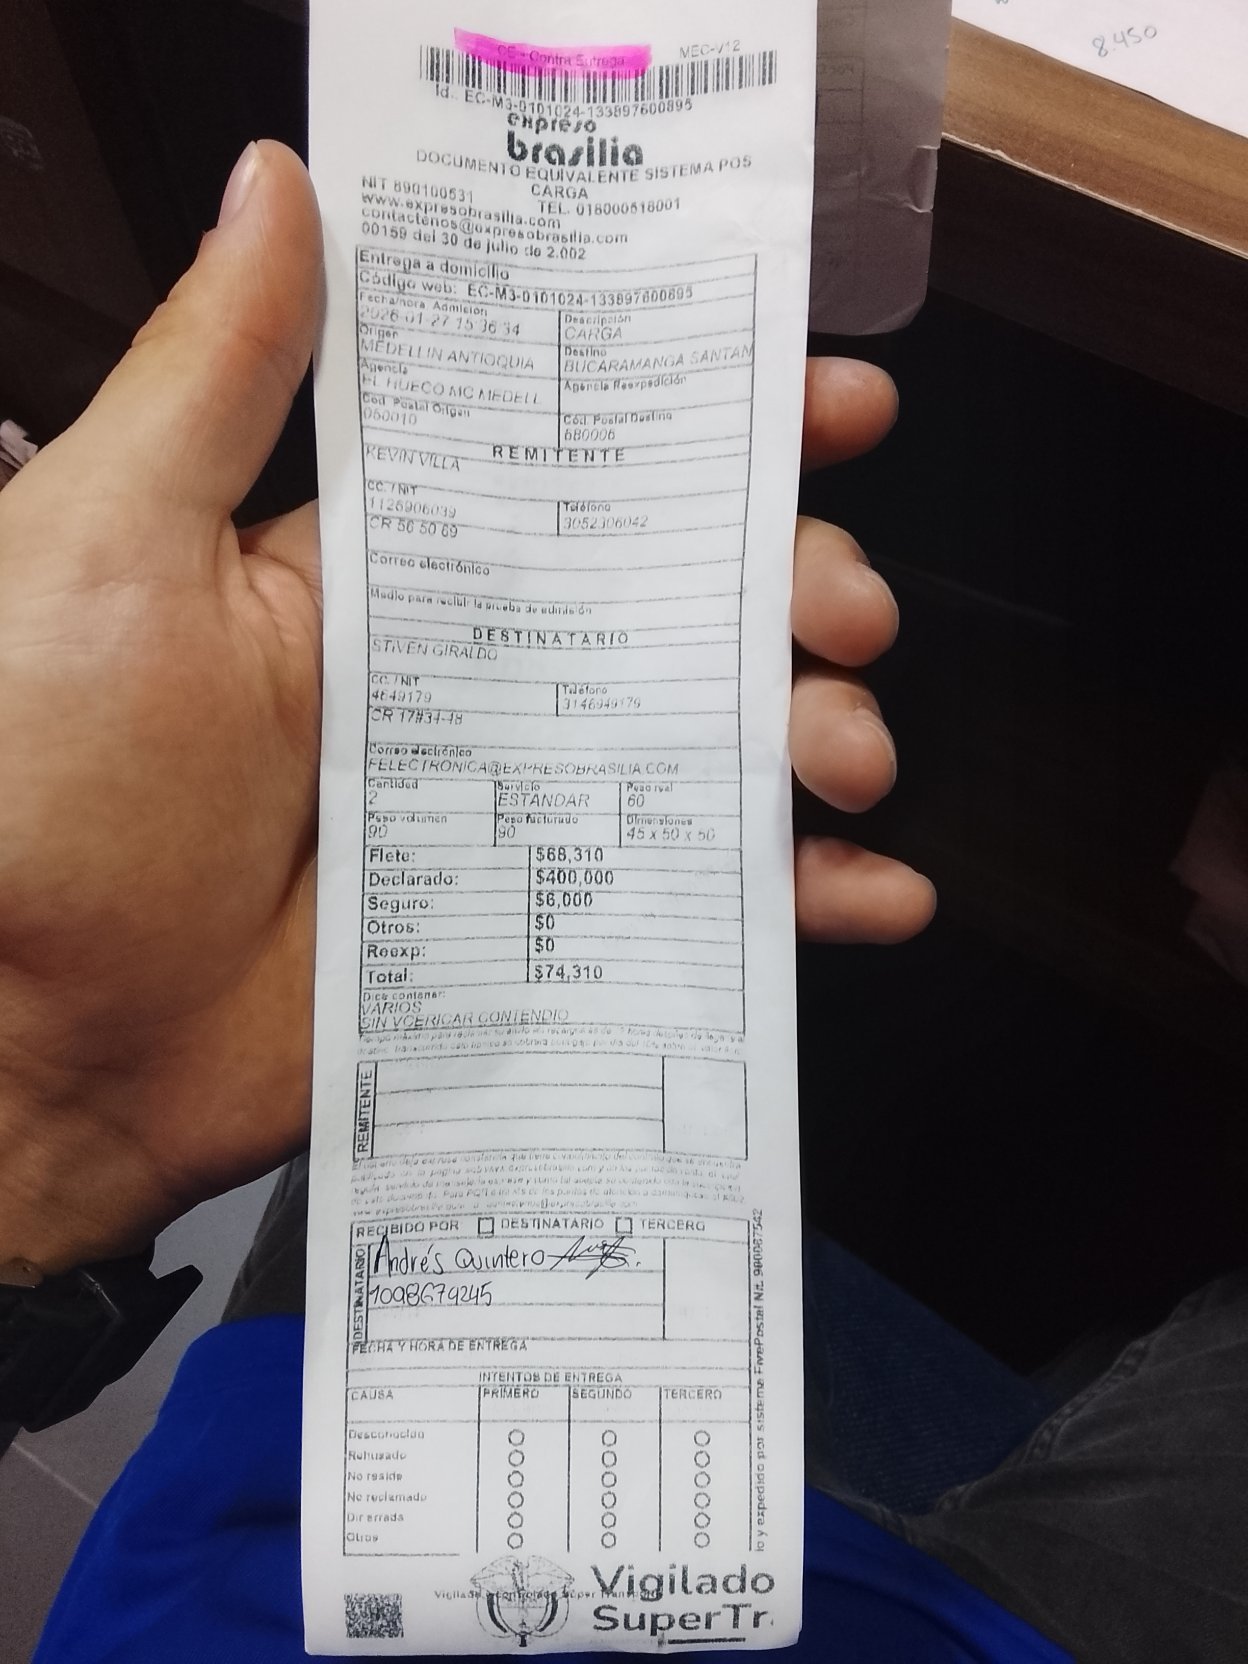 8.450
CE - Contra Entrega
MEC-V12
Id.. EC-M3-0101024-133897600895
expreso
brasilia
DOCUMENTO EQUIVALENTE SISTEMA POS
CARGA
NIT 890100531
TEL. 018000518001
www.expresobrasilia.com
contactenos@expresobrasilia.com
00159 del 30 de julio de 2.002
Entrega a domicilio
Código web: EC-M3-0101024-133897600895
Fecha/hora Admisión
2026-01-27 15:36:34
Descripción
CARGA
Origen
MEDELLIN ANTIOQUIA
Destino
BUCARAMANGA SANTAN
Agencia
EL HUECO MC MEDELL
Agencia Reexpedición
Cód. Postal Origen
050010
Cód. Postal Destino
680006
REMITENTE
KEVIN VILLA
CC. / NIT
1126906039
Teléfono
3052306042
CR 56 50 69
Correo electrónico
Medio para recibir la prueba de admisión
DESTINATARIO
STIVEN GIRALDO
CC. / NIT
4649179
Teléfono
3146949179
CR 17#34-48
Correo electrónico
FELECTRONICA@EXPRESOBRASILIA.COM
Cantidad
2
Servicio
ESTANDAR
Peso real
60
Peso volumen
90
Peso facturado
90
Dimensiones
45 x 50 x 50
Flete: $68,310
Declarado: $400,000
Seguro: $6,000
Otros: $0
Reexp: $0
Total: $74,310
Dice contener:
VARIOS
SIN VOERICAR CONTENDIO
REMITENTE
RECIBIDO POR DESTINATARIO TERCERO
DESTINATARIO
Andrés Quintero
1098674245
FECHA Y HORA DE ENTREGA
INTENTOS DE ENTREGA
CAUSA PRIMERO SEGUNDO TERCERO
Desconocido
Rehusado
No reside
No reclamado
Dir errada
Otros
lo y expedido por sistema FivePostal Nit. 900087542
Vigilado
SuperTr